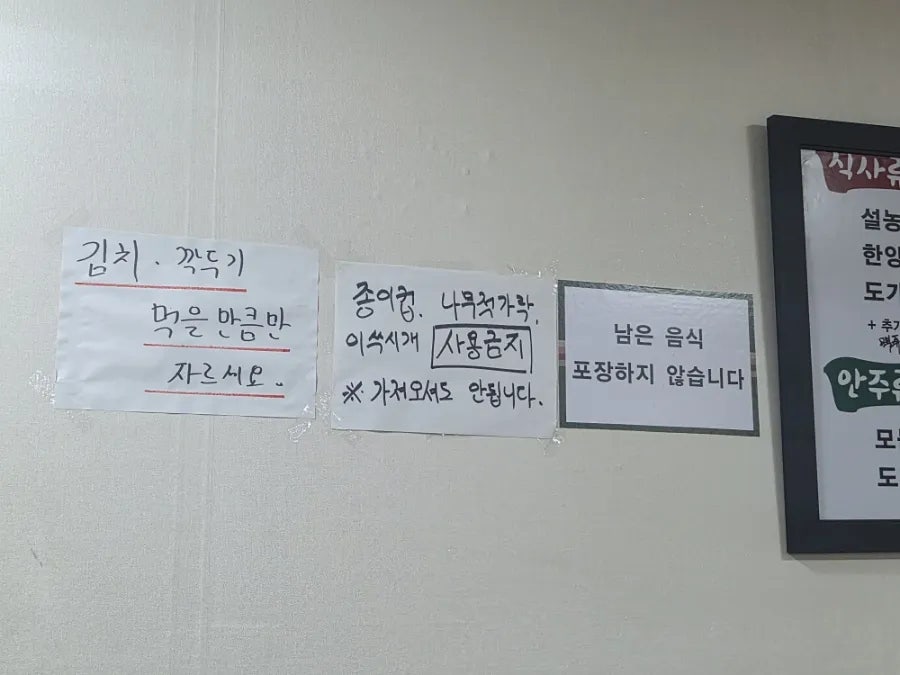 김치. 깍두기
먹을만큼만
자르세요.
종이컵. 나무젓가락.
이쑤시개 사용금지
※ 가져오셔도 안됩니다.
남은 음식
포장하지 않습니다
식사류
설농
한양
도가
+ 추가
안주류
모
도